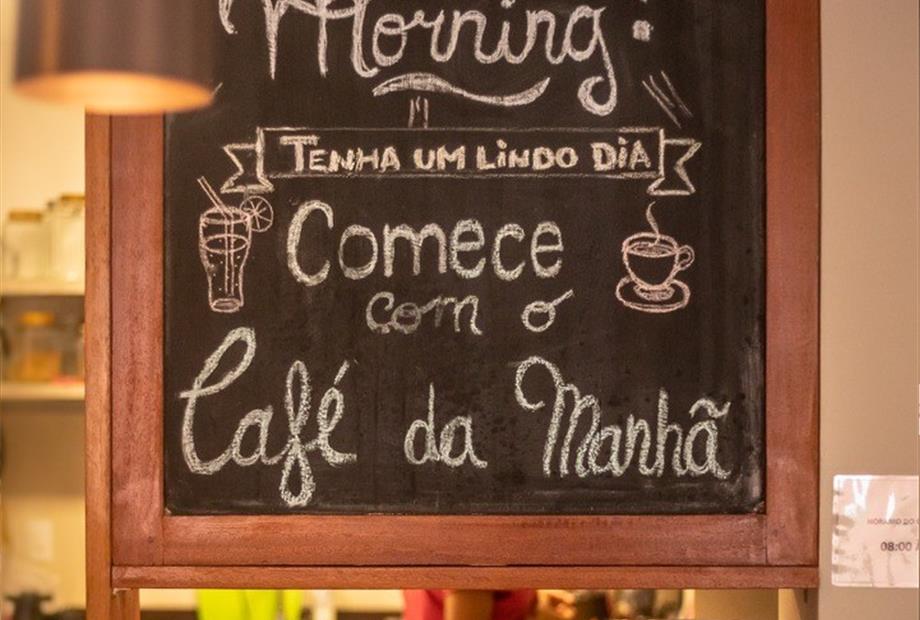 Morning!
TENHA UM LINDO DIA
Comece
com o
Café da Manhã
08:00